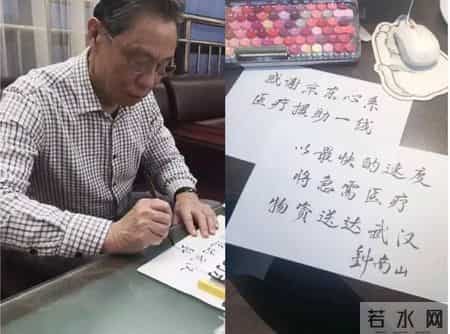 感谢京东心系
医疗援助一线
以最快的速度
将急需医疗
物资送达武汉
钟南山
若水网